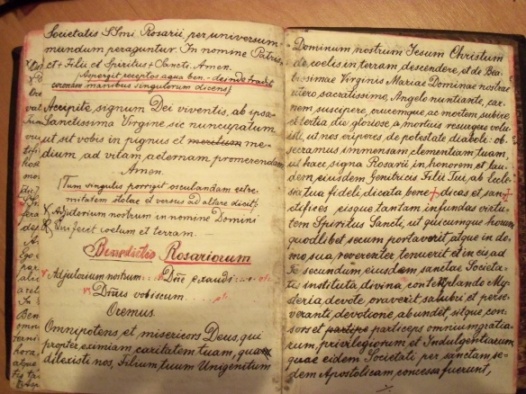 Societatis SSmi Rosarii, per universum
mundum peraguntur. In nomine Patris,
et + Filii et Spiritus + Sancti. Amen.
(Aspergit receptos aqua ben- deinde tradit
coronam manibus singulorum dicens)
Accipite signum Dei viventis, ab ipsa
Sanctissima Virgine, sic nuncupatum,
ut sit vobis in pignus et me-
dium, ad vitam aeternam promerendam.
Amen.
(Tum singulis porrigit osculandam extre-
mitatem stolae et versus ad altare dicit)
V. Adjutorium nostrum in nomine Domini
R. Qui fecit coelum et terram.
Benedictio Rosariorum
Adjutorium nostrum... Dñe exaudi
Dñus vobiscum
Oremus
Omnipotens, et misericors Deus, qui
propter eximiam caritatem tuam, qua
dilexisti nos, Filium tuum Unigenitum
Dominum nostrum Jesum Christum
de coelis in terram, descendere, et de Bea-
tissimae Virginis Mariae Dominae nostrae
utero, sacratissimo, Angelo nuntiante, car-
nem suscipere, crucemque, ac mortem subire,
et tertia die gloriose, a mortuis resurgere volu-
isti, ut nos eriperes de potestate diaboli: ob-
secramus immensam clementiam tuam,
ut haec, signa Rosarii in honorem et lau-
dem, ejusdem Genitricis Filii Tui, ab Eccle-
sia tua fideli, dicata bene + dices et sanc +
tifices eisque tantam infundas virtu-
tem Spiritus Sancti, ut quicumque horum
quodlibet secum portaverit atque in do-
mo sua, reverenter tenuerit et in eis, ad
Te secundum, ejusdem sanctae Societa-
tis instituta, divina contemplando My-
steria, devote, oraverit, salubri et perse-
veranti, devotione, abundet, sitque, con-
sors et particeps omnium gratia-
rum, privilegiorum et Indulgentiarum
quae eidem Societati per sanctam, se-
dem Apostolicam, concessa fuerunt,